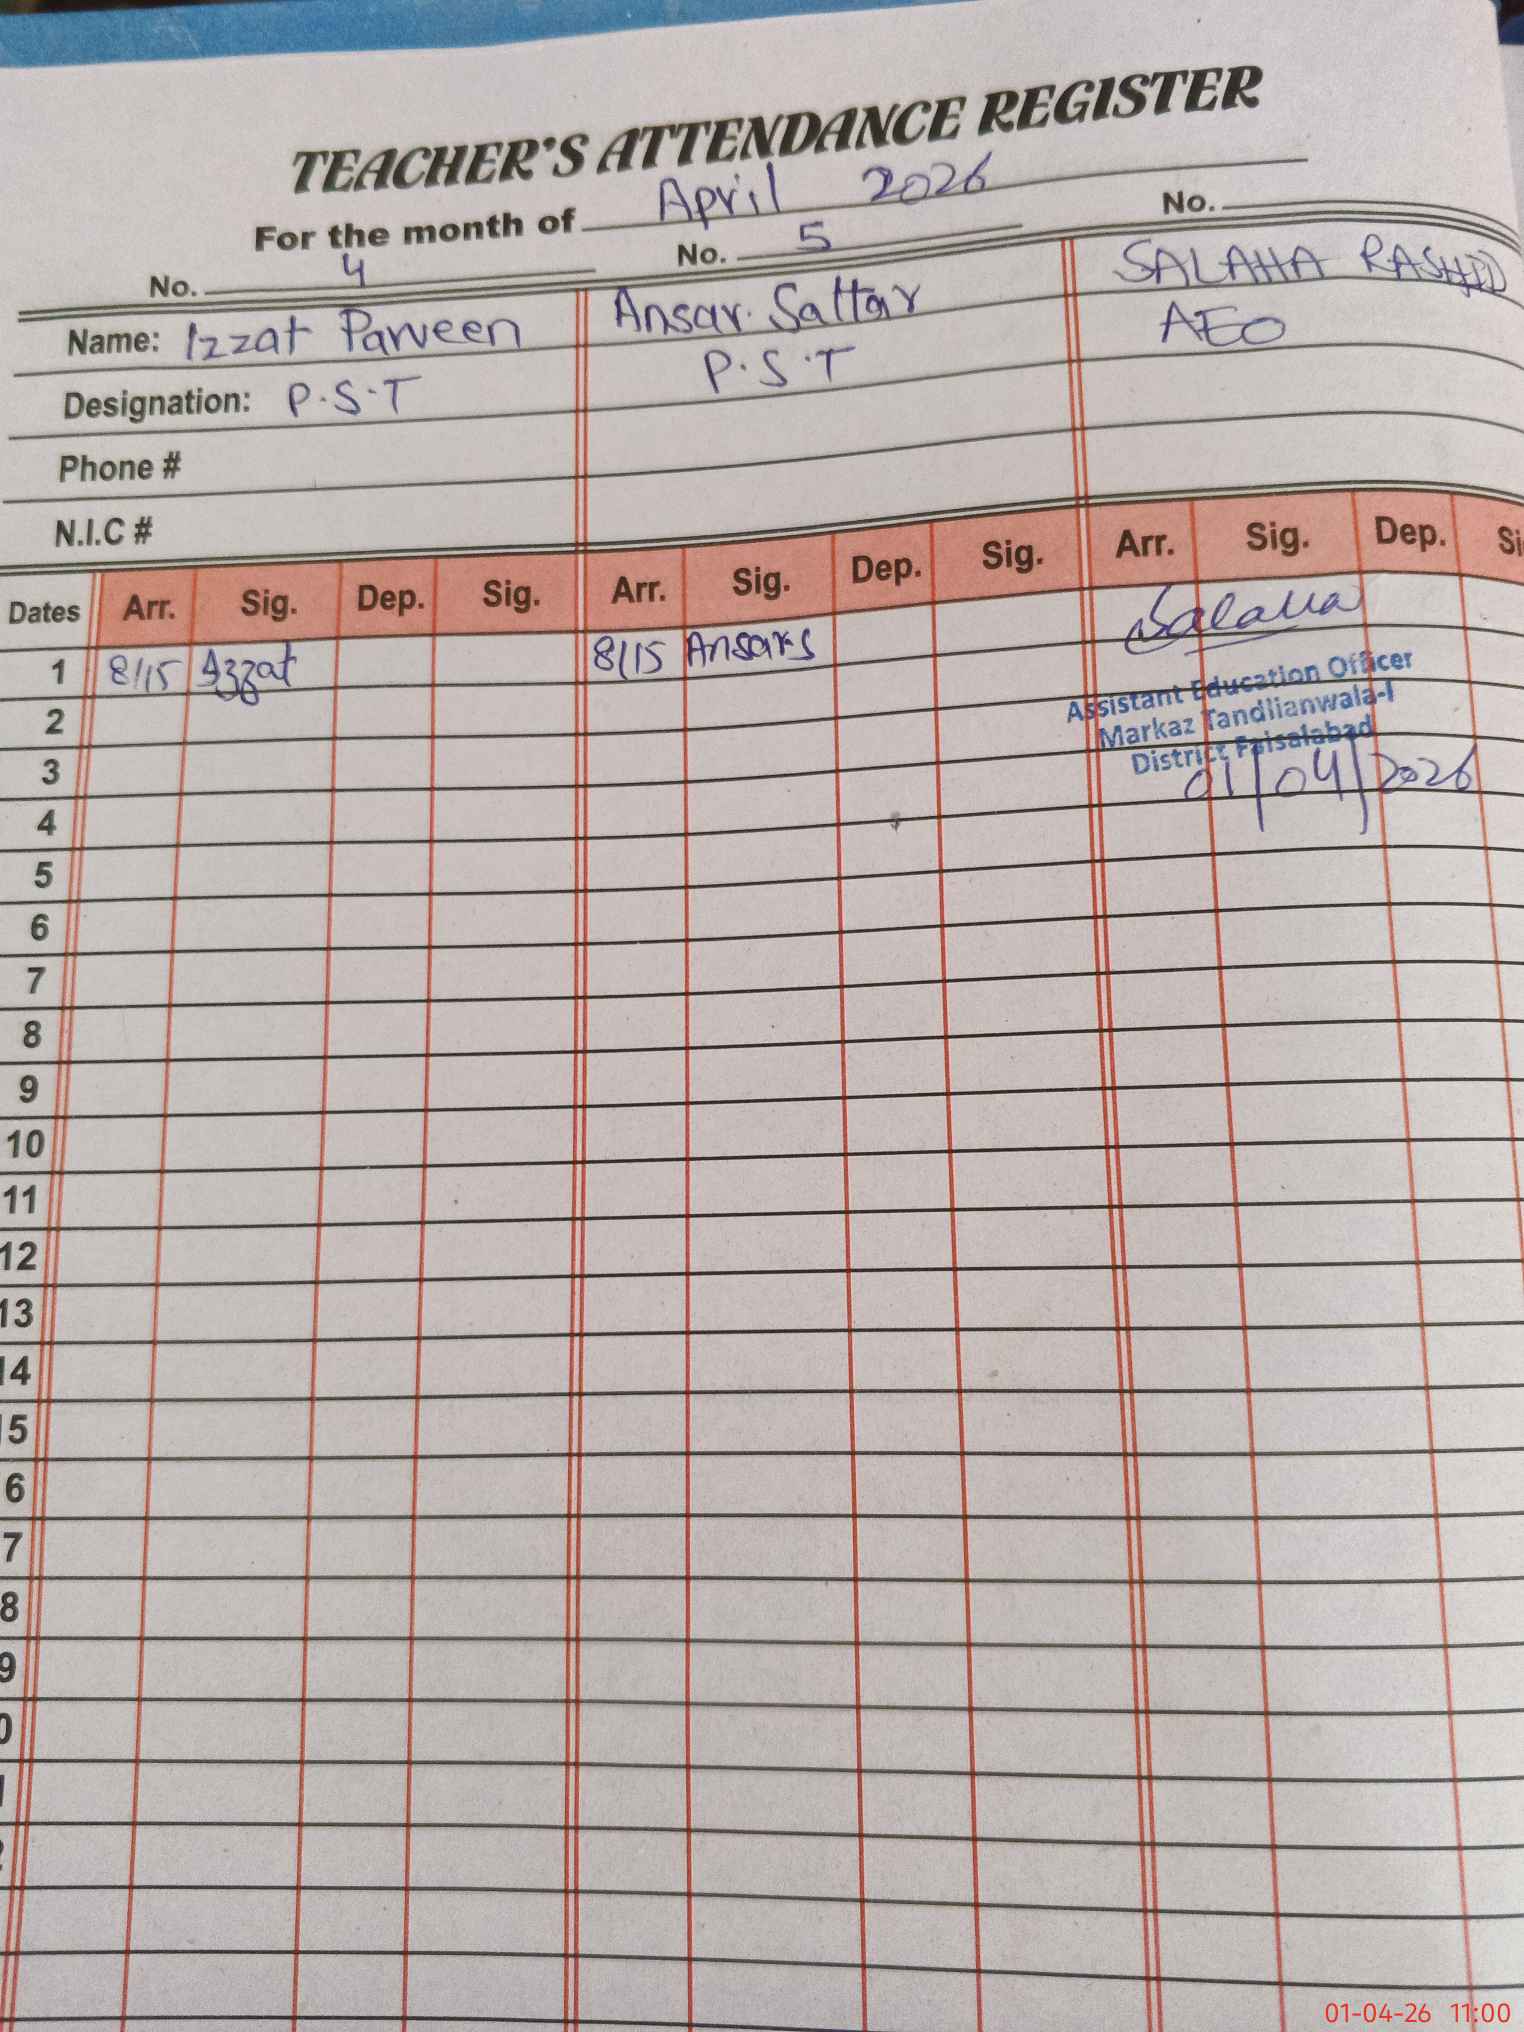 TEACHER'S ATTENDANCE REGISTER
For the month of April 2026
No. 4 No. 5 No.
Name: Izzat Parveen Ansar Sattar SALAHA RASHID
Designation: P.S.T P.S.T AEO
Phone #
N.I.C #
Dates Arr. Sig. Dep. Sig. Arr. Sig. Dep. Sig. Arr. Sig. Dep. Si
1 8/15 Izzat 8/15 Ansar S Salaha
Assistant Education Officer
Markaz Tandlianwala-I
District Faisalabad
01/04/2026
2
3
4
5
6
7
8
9
10
11
12
13
14
15
6
7
8
9
0
01-04-26 11:00